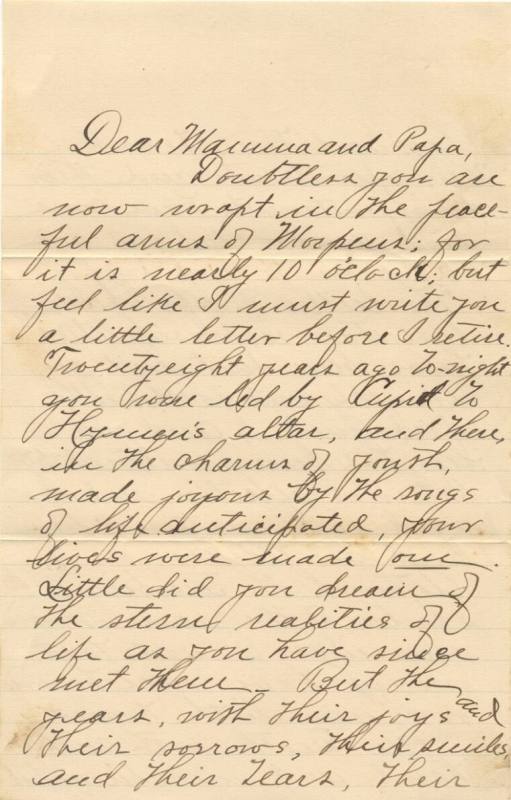 Dear Mamma and Papa,
Doubtless you are
now wrapt in the peace-
ful arms of Morpeus; for
it is nearly 10 o'clock; but
feel like I must write you
a little letter before I retire.
Twentyeight years ago to-night
you were led by Cupid to
Hymen's altar, and there,
in the charms of youth,
made joyous by the songs
of life anticipated, your
lives were made one.
Little did you dream of
the stern realities of
life as you have since
met them - But the
years, with their joys and
their sorrows, their smiles,
and their tears, their